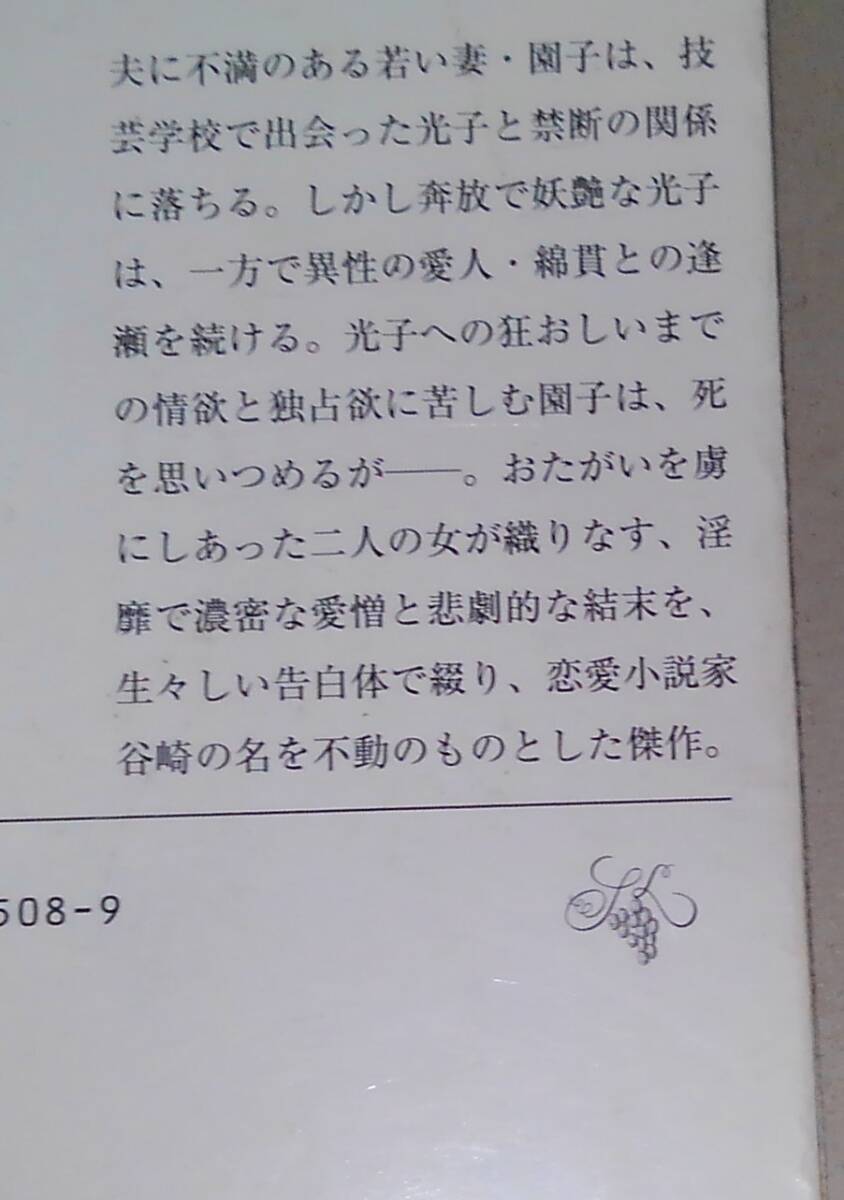 夫に不満のある若い妻・園子は、技
芸学校で出会った光子と禁断の関係
に落ちる。しかし奔放で妖艶な光子
は、一方で異性の愛人・綿貫との逢
瀬を続ける。光子への狂おしいまで
の情欲と独占欲に苦しむ園子は、死
を思いつめるが――。おたがいを虜
にしあった二人の女が織りなす、淫
靡で濃密な愛憎と悲劇的な結末を、
生々しい告白体で綴り、恋愛小説家
谷崎の名を不動のものとした傑作。
508-9
SK